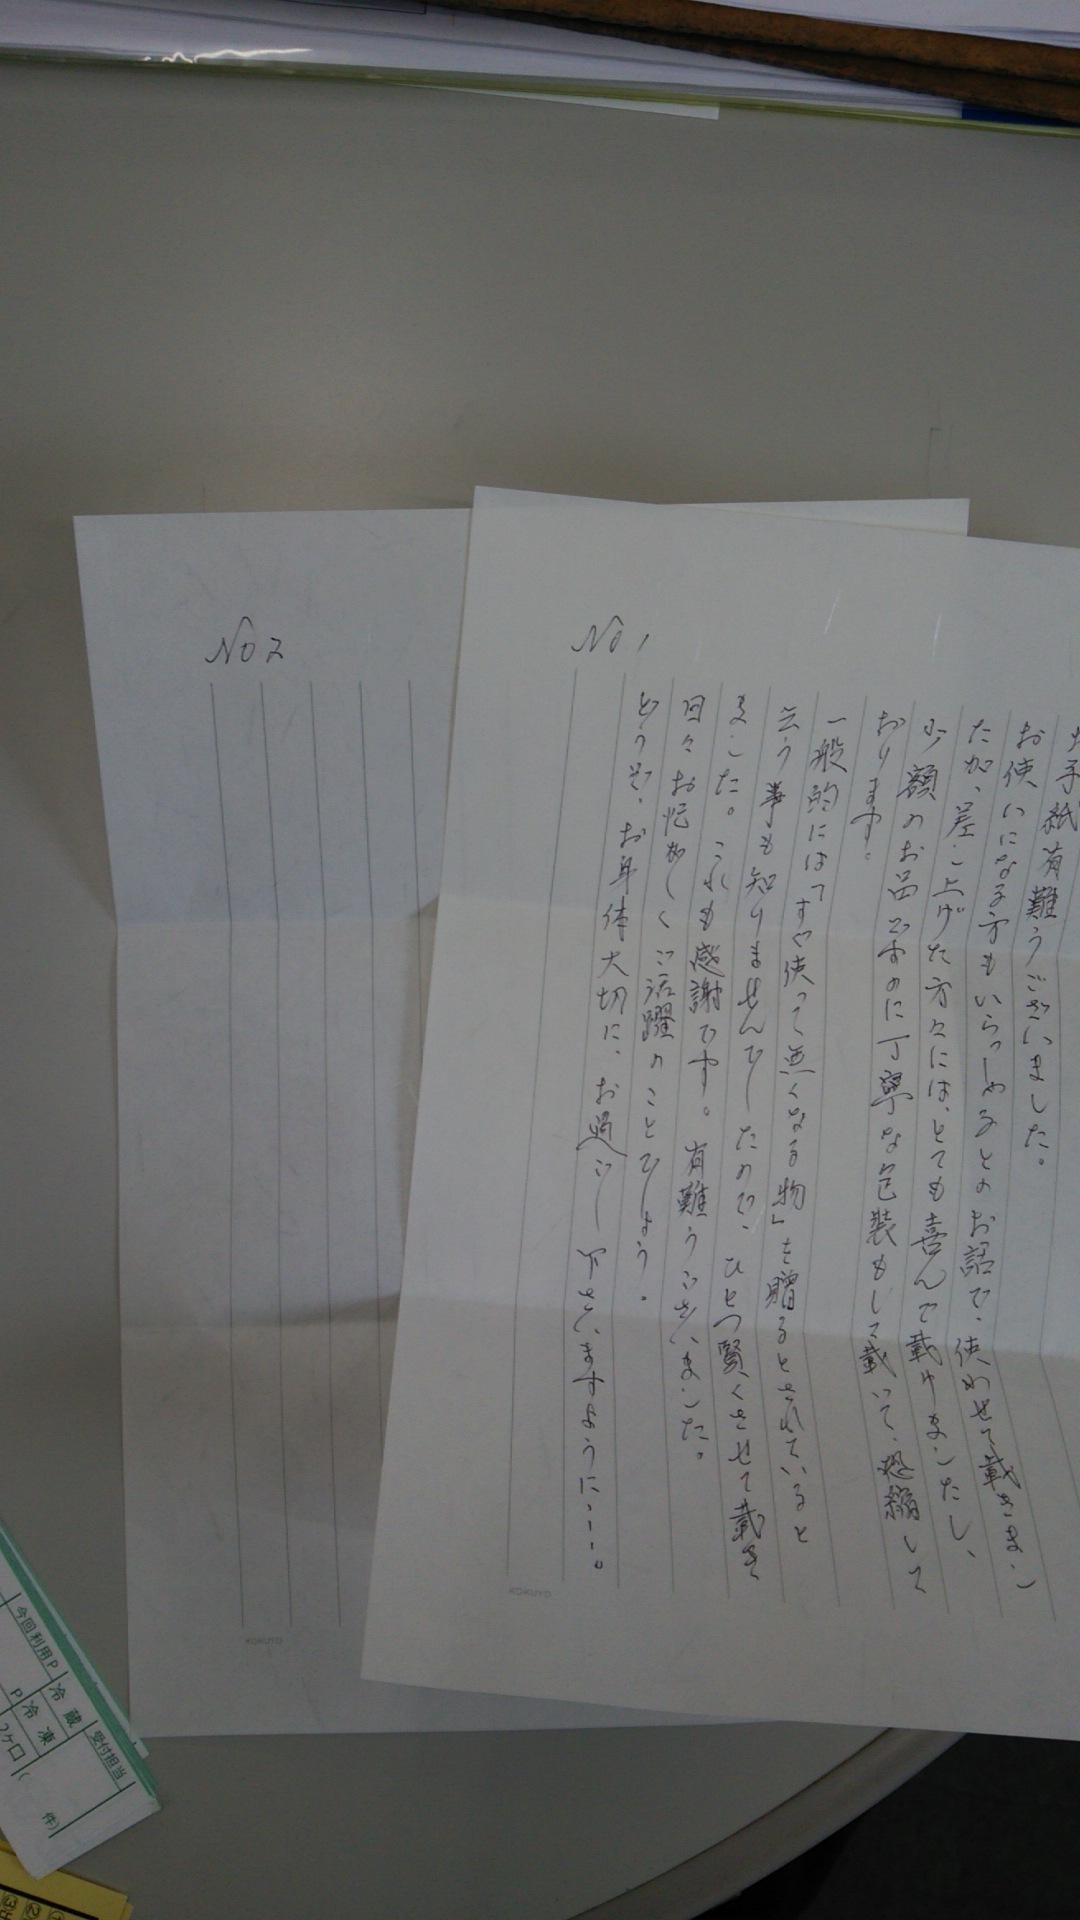 お手紙有難うございました。
お使いになる方もいらっしゃるとのお話で、使わせて載きまし
たが、差し上げた方々には、とても喜んで載けましたし、
少額のお品ですのに丁寧な包装もして載いて、恐縮して
おります。
一般的には「すぐ使って無くなる物」を贈るとされていると
云う事も知りませんでしたので、ひとつ賢くさせて載き
ました。これも感謝です。有難うございました。
日々お忙がしくご活躍のことでしょう。
どうぞ、お身体大切に、お過ごし下さいますように・・・。
No 1
KOKUYO
No 2
KOKUYO
今回利用P
P
冷蔵
冷凍
受付担当
件)